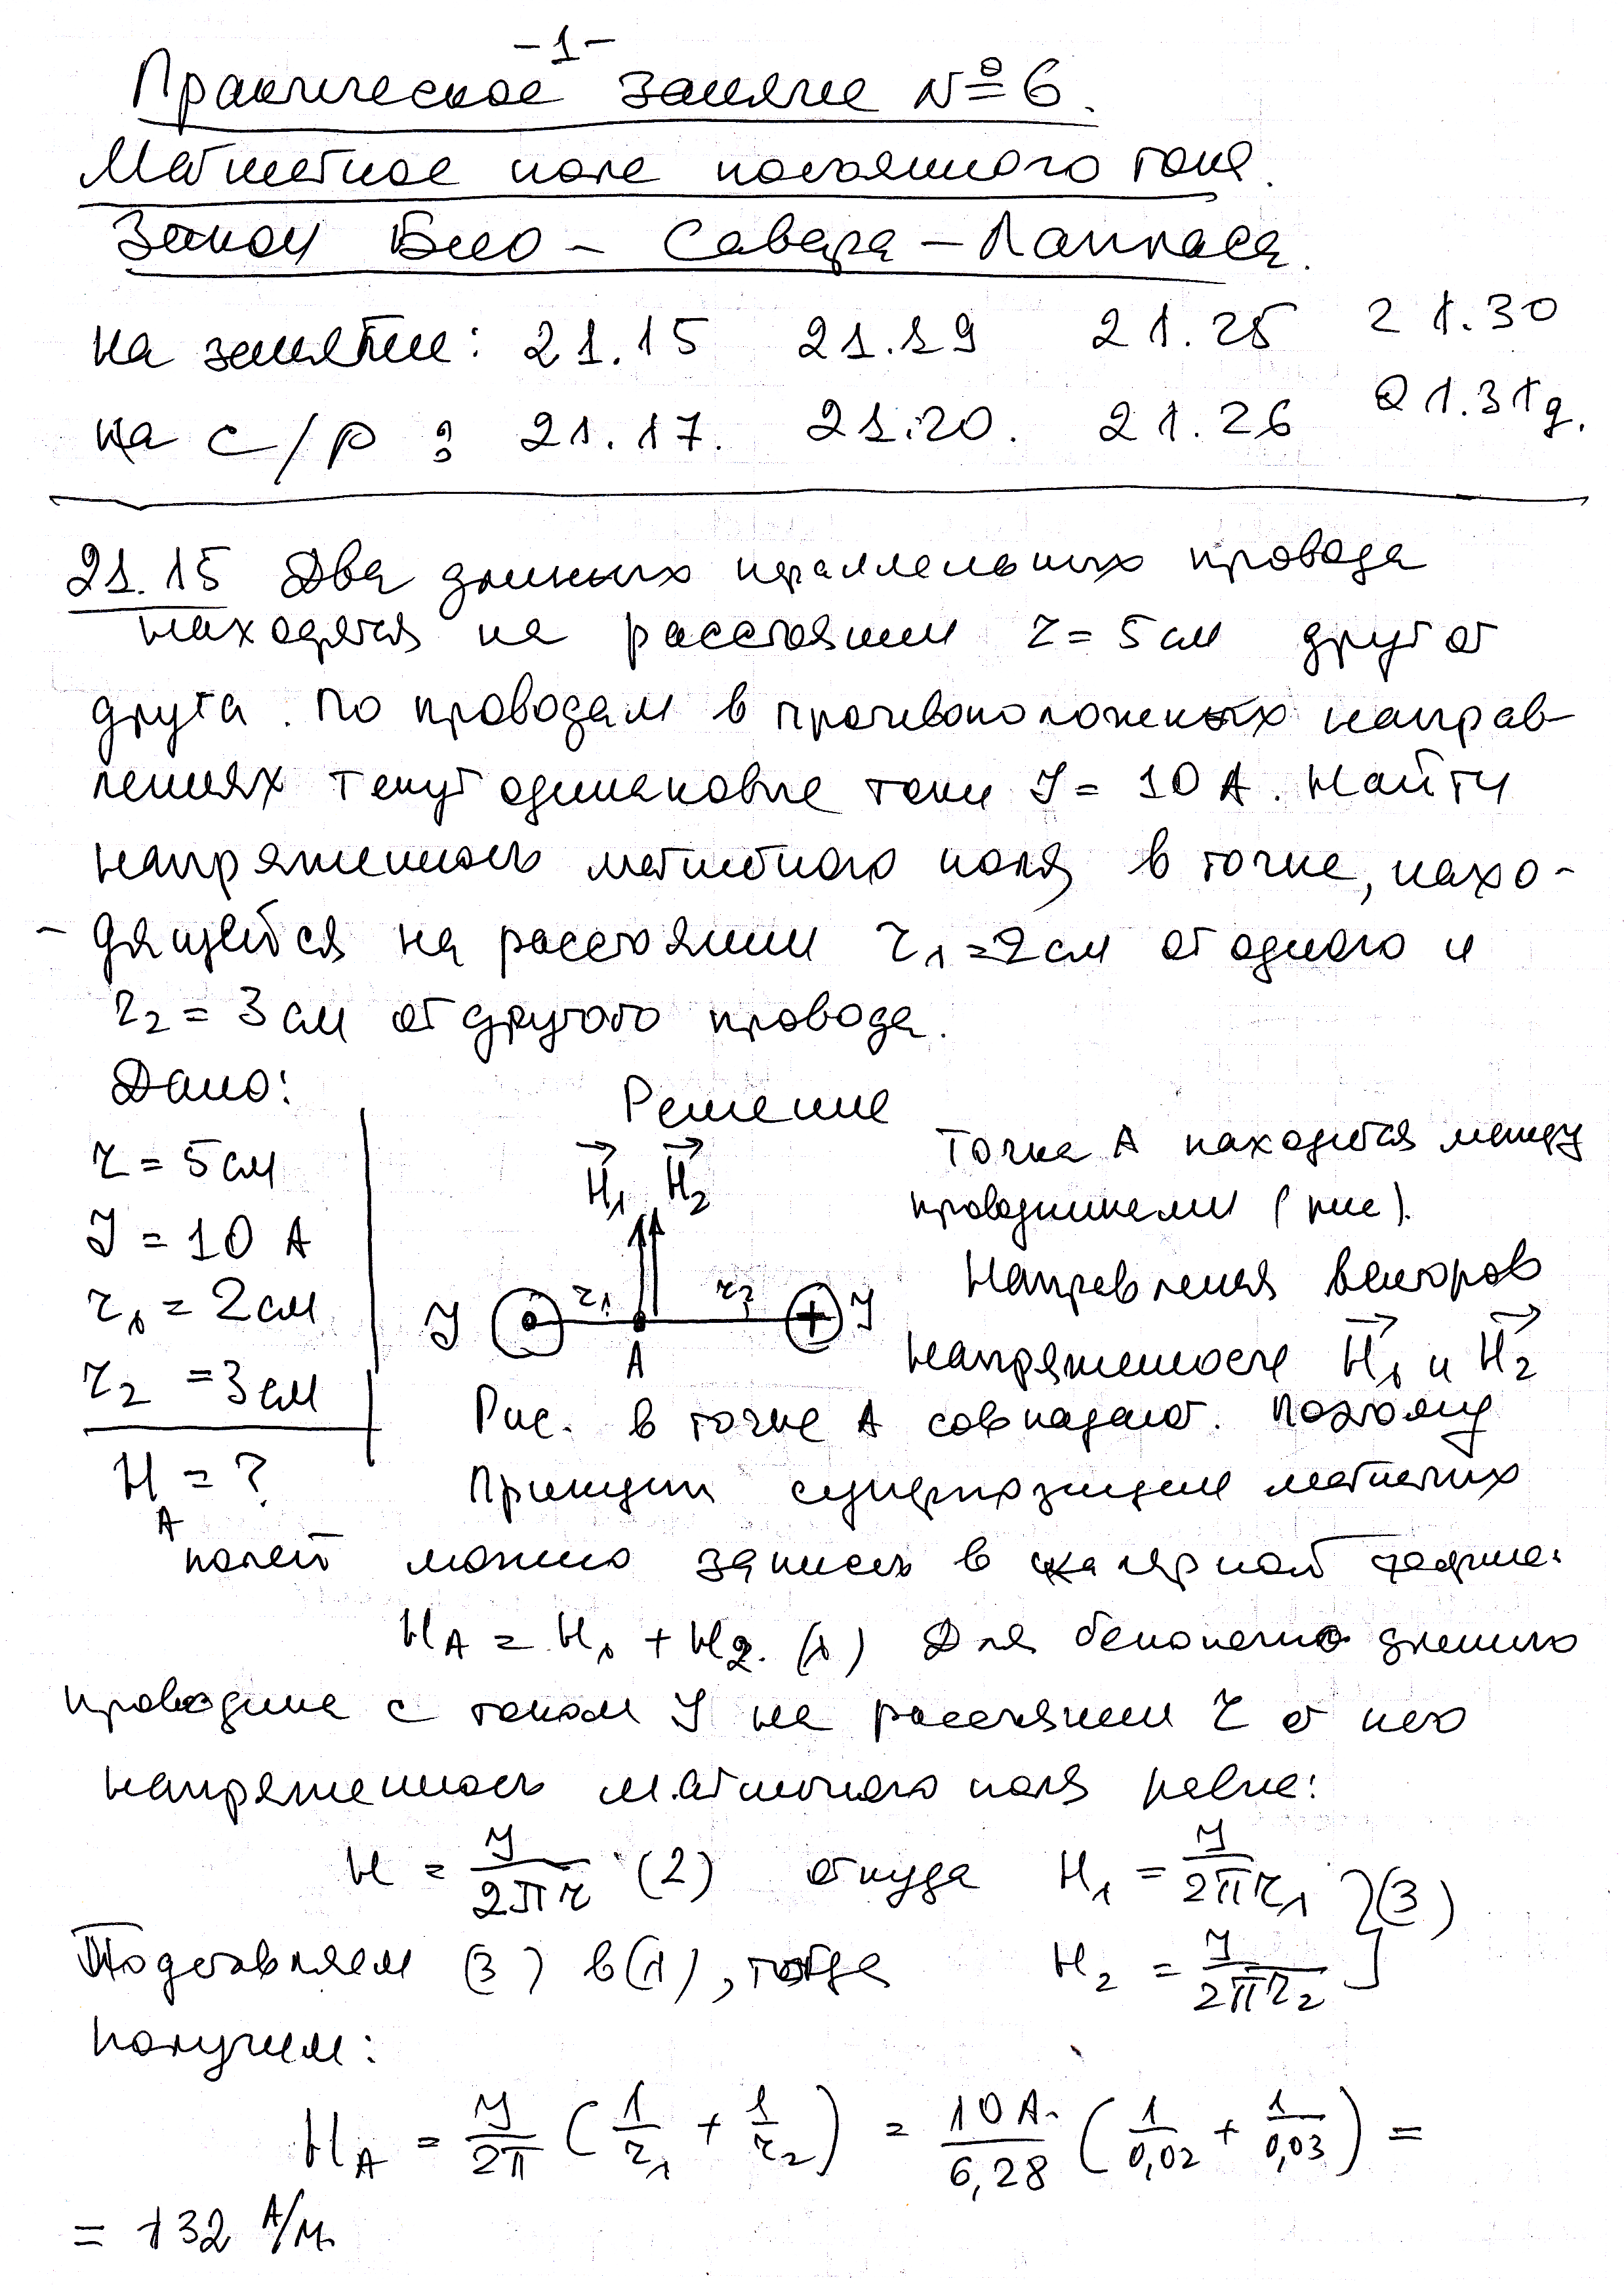 -1-
Практическое занятие №6.
Магнитное поле постоянного тока.
Закон Био - Савара - Лапласа.
на занятии: 21.15 21.19 21.25 21.30
на с/р : 21.17. 21.20. 21.26 21.31 д.
21.15 Два длинных параллельных провода
находятся на расстоянии r = 5 см друг от
друга. По проводам в противоположных направ-
лениях текут одинаковые токи I = 10 А. Найти
напряженность магнитного поля в точке, нахо-
- дящейся на расстоянии r₁ = 2 см от одного и
r₂ = 3 см от другого провода.
Дано:
r = 5 см
I = 10 А
r₁ = 2 см
r₂ = 3 см
H_A = ?
Решение
H⃗₁ H⃗₂
I r₁ r₂ I
A
Точка А находится между
проводниками (рис).
Направления векторов
напряженности H⃗₁ и H⃗₂
Рис. в точке А совпадают. Поэтому
Принцип суперпозиции магнитных
полей можно записать в скалярной форме:
H_A = H₁ + H₂. (1) Для бесконечно длинного
проводника с током I на расстоянии r от него
напряженность магнитного поля равна:
H = I/2πr (2) откуда H₁ = I/2πr₁ } (3)
Подставляем (3) в (1), тогда H₂ = I/2πr₂
получим:
H_A = I/2π (1/r₁ + 1/r₂) = 10 А/6,28 (1/0,02 + 1/0,03) =
= 132 А/м.